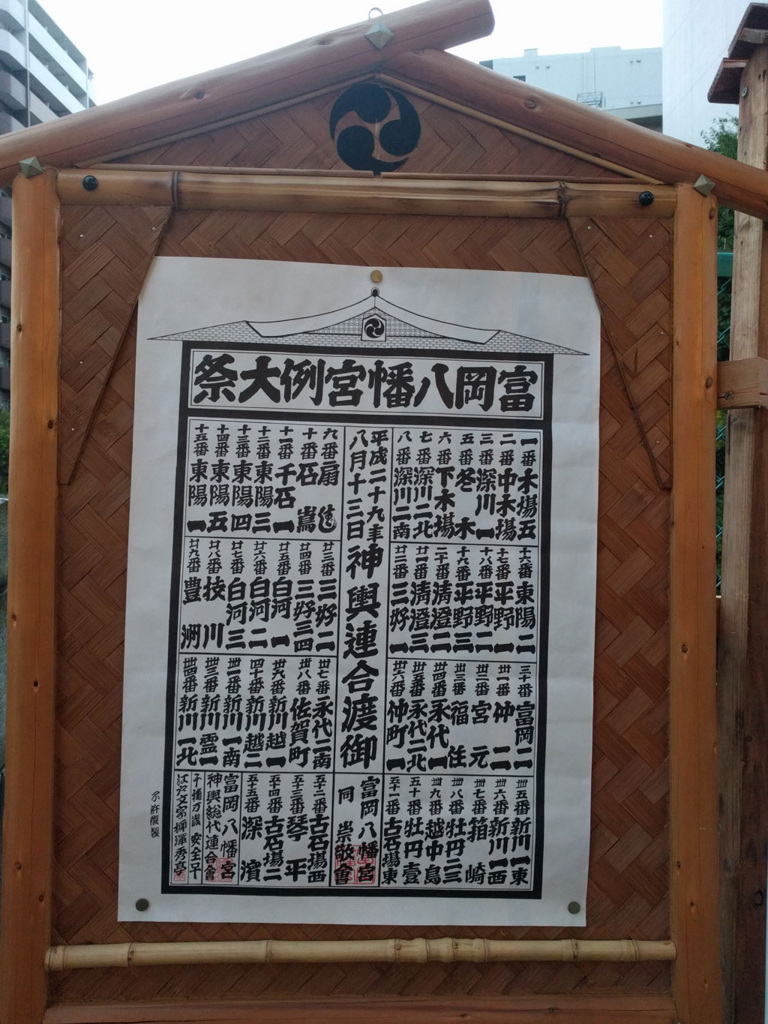 富岡八幡宮例大祭
一番 木場五
二番 中木場
三番 深川一
五番 冬木
六番 下木場
七番 深川二北
八番 深川二南
平成二十九年
八月十三日
神輿連合渡御
九番 扇住
十番 石嶌
十一番 千石一
十二番 東陽三
十三番 東陽四
十四番 東陽五
十五番 東陽一
十六番 東陽二
十七番 平野一
十八番 平野二
十九番 平野三
二十番 清澄二
廿一番 清澄三
廿二番 三好一
廿三番 三好二
廿四番 三好三四
廿五番 白河一
廿六番 白河二
廿七番 白河三
廿八番 枝川
廿九番 豊洲
三十番 富岡二
卅一番 仲二
卅二番 宮元
卅三番 福住
卅四番 永代一
卅五番 永代二北
卅六番 仲町一
卅七番 永代二南
卅八番 佐賀町
卅九番 新川一
四十番 新川越二
卌一番 新川一南
卌二番 新川霊二
卌四番 新川一北
卌五番 新川一東
卌六番 新川一西
卌七番 箱崎
卌八番 牡丹二三
卌九番 越中島
五十番 牡丹壹
五十一番 古石場東
富岡八幡宮
同 崇敬會
五十二番 古石場西
五十三番 琴平
五十四番 古石場二
五十五番 深濱
富岡八幡宮
神輿総代連合會
千穐万歳 安全吉
江戸文字 橘渓秀亭
不許複製